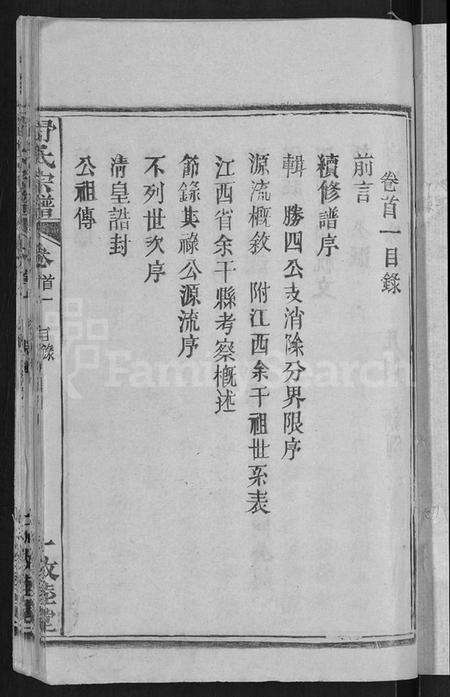 卷首一目錄
前言
續修譜序
輯 勝四公支消除分界限序
源流概敘 附江西余干祖世系表
江西省余干縣考察概述
節錄其祿公源流序
不列世次序
清皇誥封
公祖傳
舒氏宗譜 卷首一 目錄
一 敦睦堂
FamilySearch